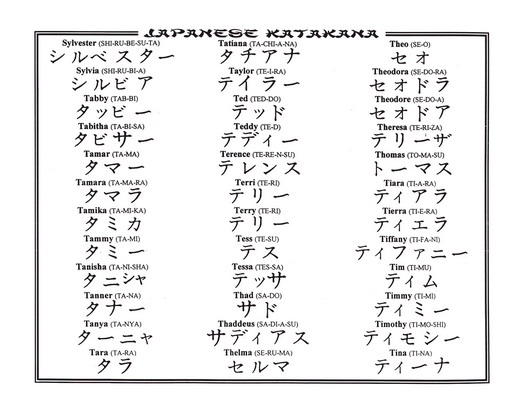 JAPANESE KATAKANA
Sylvester (SHI-RU-BE-SU-TA)
シルベスター
Sylvia (SHI-RU-BI-A)
シルビア
Tabby (TAB-BI)
タッビー
Tabitha (TA-BI-SA)
タビサー
Tamar (TA-MA)
タマー
Tamara (TA-MA-RA)
タマラ
Tamika (TA-MI-KA)
タミカ
Tammy (TA-MI)
タミー
Tanisha (TA-NI-SHA)
タニシャ
Tanner (TA-NA)
タナー
Tanya (TA-NYA)
ターニャ
Tara (TA-RA)
タラ
Tatiana (TA-CHI-A-NA)
タチアナ
Taylor (TE-I-RA)
テイラー
Ted (TED-DO)
テッド
Teddy (TE-D)
テディー
Terence (TE-RE-N-SU)
テレンス
Terri (TE-RI)
テリー
Terry (TE-RI)
テリー
Tess (TE-SU)
テス
Tessa (TES-SA)
テッサ
Thad (SA-DO)
サド
Thaddeus (SA-DI-A-SU)
サディアス
Thelma (SE-RU-MA)
セルマ
Theo (SE-O)
セオ
Theodora (SE-DO-RA)
セオドラ
Theodore (SE-DO-A)
セオドア
Theresa (TE-RI-ZA)
テリーザ
Thomas (TO-MA-SU)
トーマス
Tiara (TI-A-RA)
ティアラ
Tierra (TI-E-RA)
ティエラ
Tiffany (TI-FA-NI)
ティファニー
Tim (TI-MU)
ティム
Timmy (TI-MI)
ティミー
Timothy (TI-MO-SHI)
ティモシー
Tina (TI-NA)
ティーナ